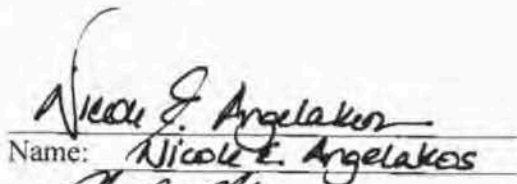 Nicole E. Angelakos
Name: Nicole E. Angelakos